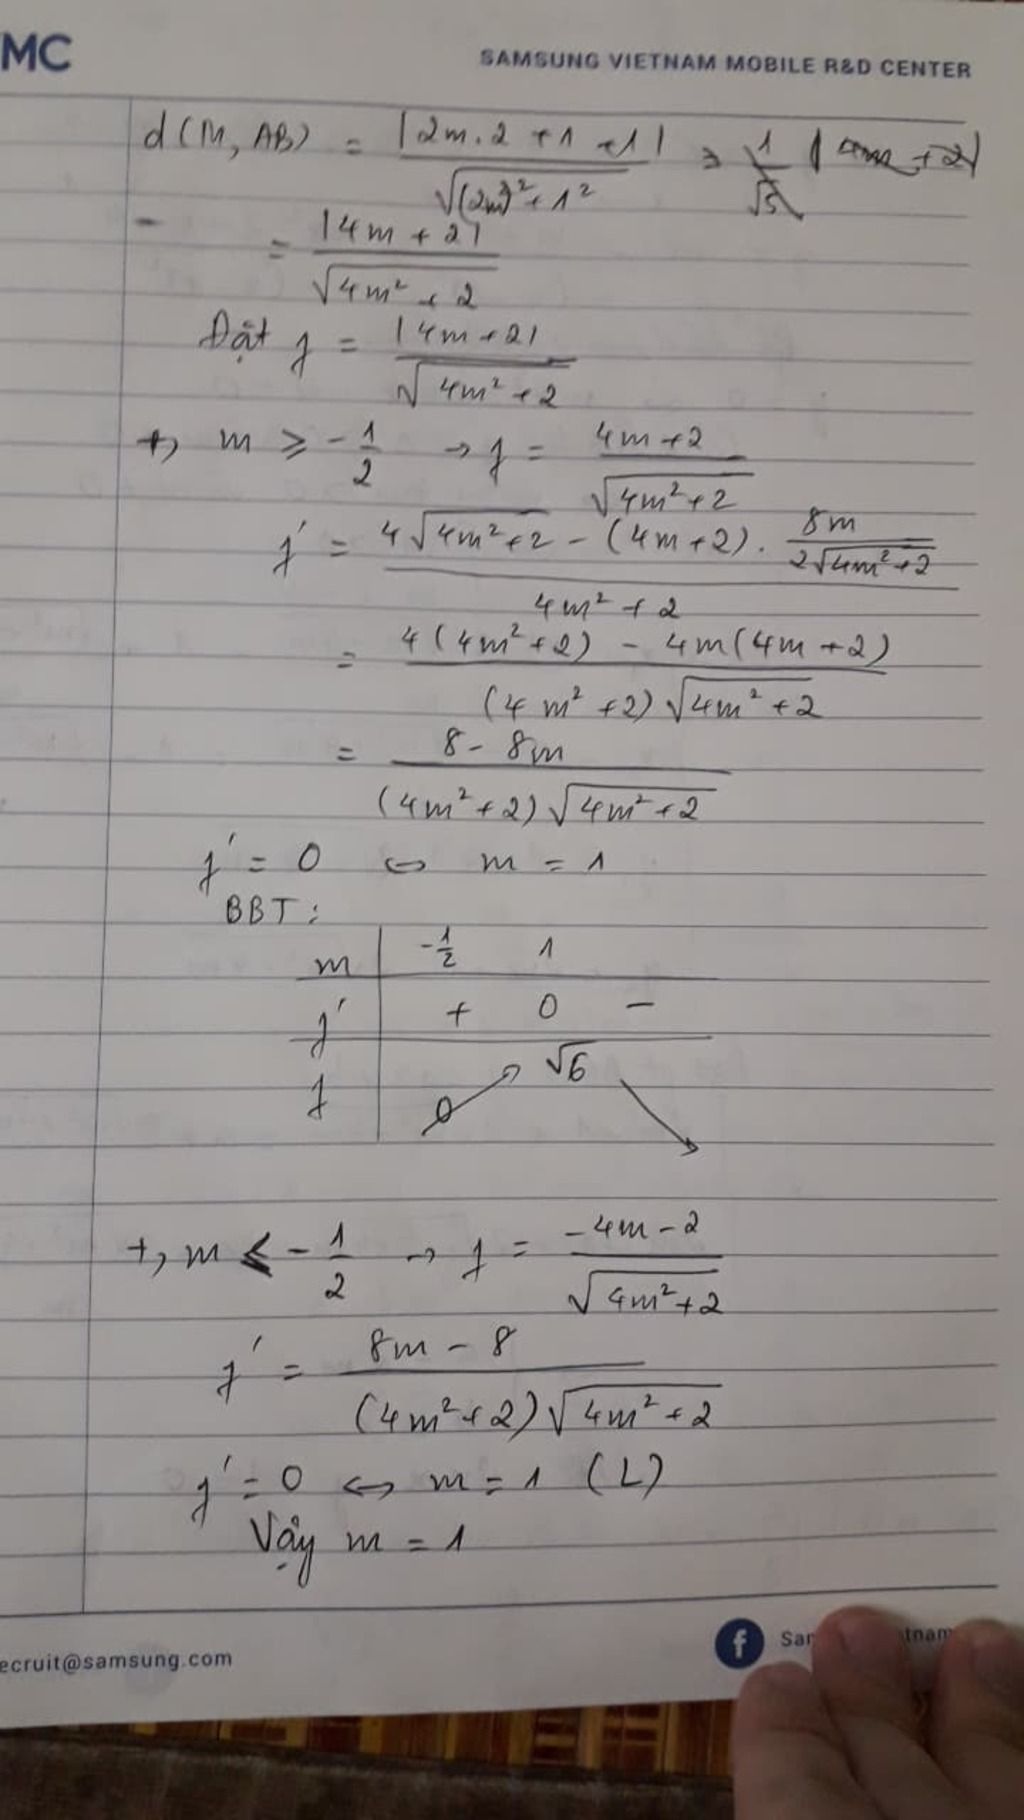 MC
SAMSUNG VIETNAM MOBILE R&D CENTER
d(M, AB) = |2m.2 + 1 + 1| / √((2m)² + 1²) = 1/√5 |4m + 2|
= |4m + 2| / √(4m² + 2)
Đặt f = |4m + 2| / √(4m² + 2)
+, m ≥ -1/2 → f = (4m + 2) / √(4m² + 2)
f' = (4√(4m² + 2) - (4m + 2) . 8m / (2√(4m² + 2))) / (4m² + 2)
= (4(4m² + 2) - 4m(4m + 2)) / ((4m² + 2)√(4m² + 2))
= (8 - 8m) / ((4m² + 2)√(4m² + 2))
f' = 0 ⇔ m = 1
BBT:
m -1/2 1
f' + 0 -
f 0 √6
+, m ≤ -1/2 → f = (-4m - 2) / √(4m² + 2)
f' = (8m - 8) / ((4m² + 2)√(4m² + 2))
f' = 0 ⇔ m = 1 (L)
Vậy m = 1
ecruit@samsung.com
f